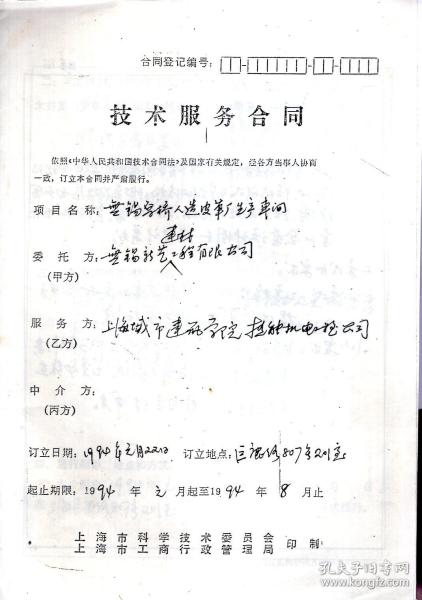 合同登记编号:
技术服务合同
依照《中华人民共和国技术合同法》及国家有关规定，经各方当事人协商
一致，订立本合同并严肃履行。
项目名称: 无锡 人造皮革厂生产车间
建材
委托方: 无锡 工程有限公司
(甲方)
服务方: 上海城市建设学院 机电 公司
(乙方)
中介方:
(丙方)
订立日期: 1994年元月22日 订立地点: 807号201室
起止期限: 1994年元月起至1994年8月止
上海市科学技术委员会
上海市工商行政管理局 印制
孔夫子旧书网
kongfz.com